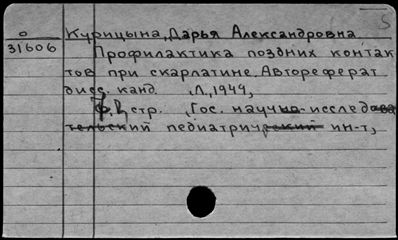 5
о Курицына, Дарья Александровна
31606 Профилактика поздних контак-
тов при скарлатине. Автореферат
дисс. канд. Л, 1949,
стр. , Гос. научно-исследова
тельский педиатрический ин-т,